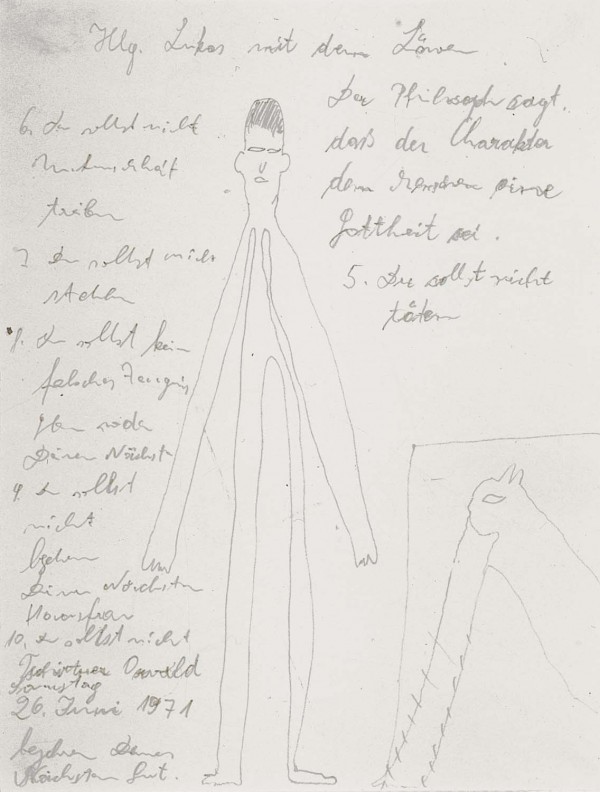 Hlg. Lukas mit dem Löwen
Der Philosoph sagt,
daß der Charakter
dem Menschen eine
Gottheit sei.
5. Du sollst nicht
töten
6. Du sollst nicht
treiben
7. Du sollst nicht
stehlen
Du sollst kein
falsches Zeugnis
Deinen Nächsten
9. Du sollst
nicht
Deines Nächsten
Hausfrau
10. Du sollst nicht
Tschirtner Oswald
Samstag
26. Juni 1971
begehren Deines
Nächsten Gut.